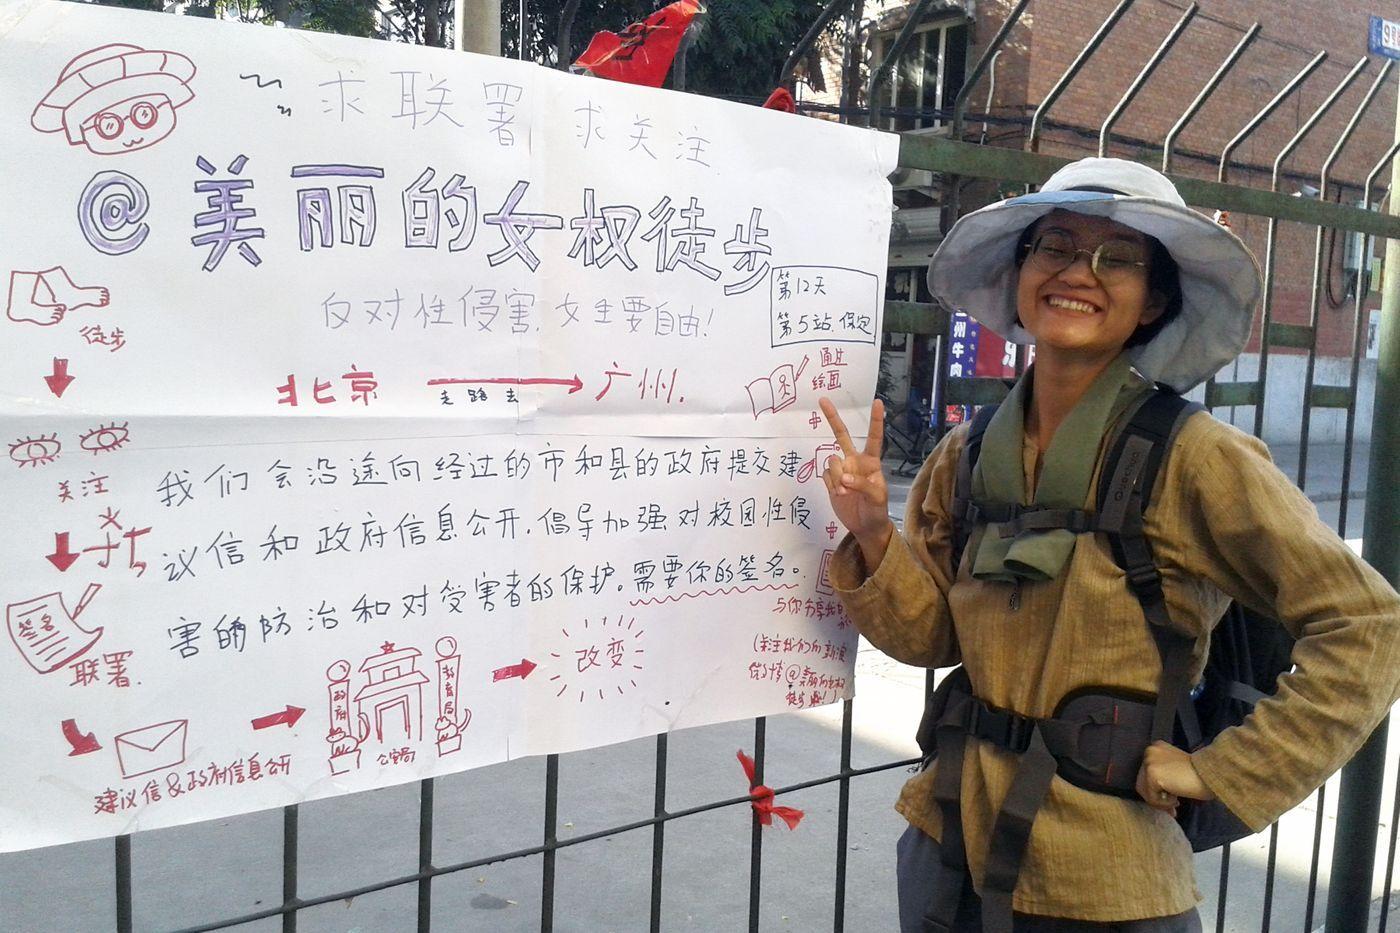 求联署 求关注
@美丽的女权徒步
反对性侵害,女生要自由!
第12天
第5站.保定
徒步
北京
走路去
广州.
通过
绘画
关注
支持
签名
联署.
我们会沿途向经过的市和县的政府提交建
议信和政府信息公开,倡导加强对校园性侵
害的防治和对受害者的保护。需要你的签名。
与你分享我的
(关注我们的新浪
微博@美丽的女权
徒步
建议信&政府信息公开
政府
教育局
公安局
改变
Quechua
州牛肉